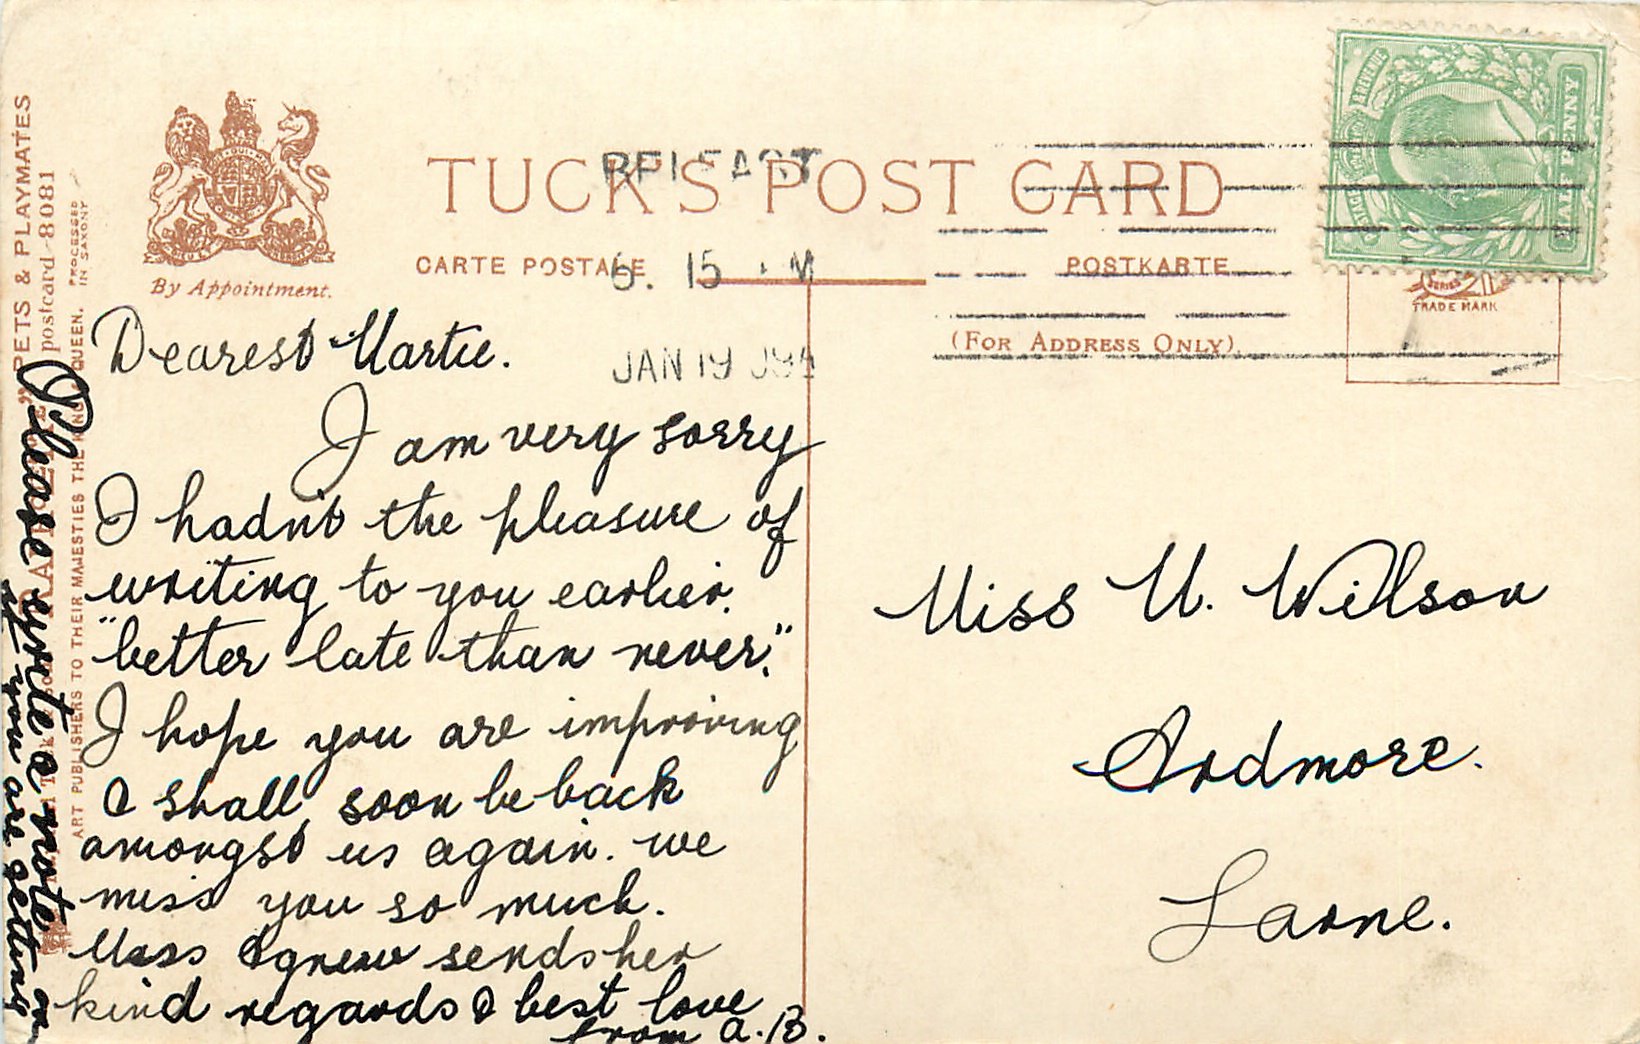 TUCK'S POST CARD
CARTE POSTALE
POSTKARTE
(FOR ADDRESS ONLY)
By Appointment.
BELFAST
6. 15 M
JAN 19
REVENUE
HALF PENNY
SERIES
TRADE MARK
"PETS & PLAYMATES"
postcard 8081
PROCESSED
IN SAXONY
ART PUBLISHERS TO THEIR MAJESTIES THE KING & QUEEN.
Dearest Martie.
I am very sorry
I hadn't the pleasure of
writing to you earlier.
"better late than never."
I hope you are improving
& shall soon be back
amongst us again. we
miss you so much.
Miss Agnew sends her
kind regards & best love
from A.B.
Please write a note on
if you are getting
Miss M. Wilson
Ardmore.
Larne.